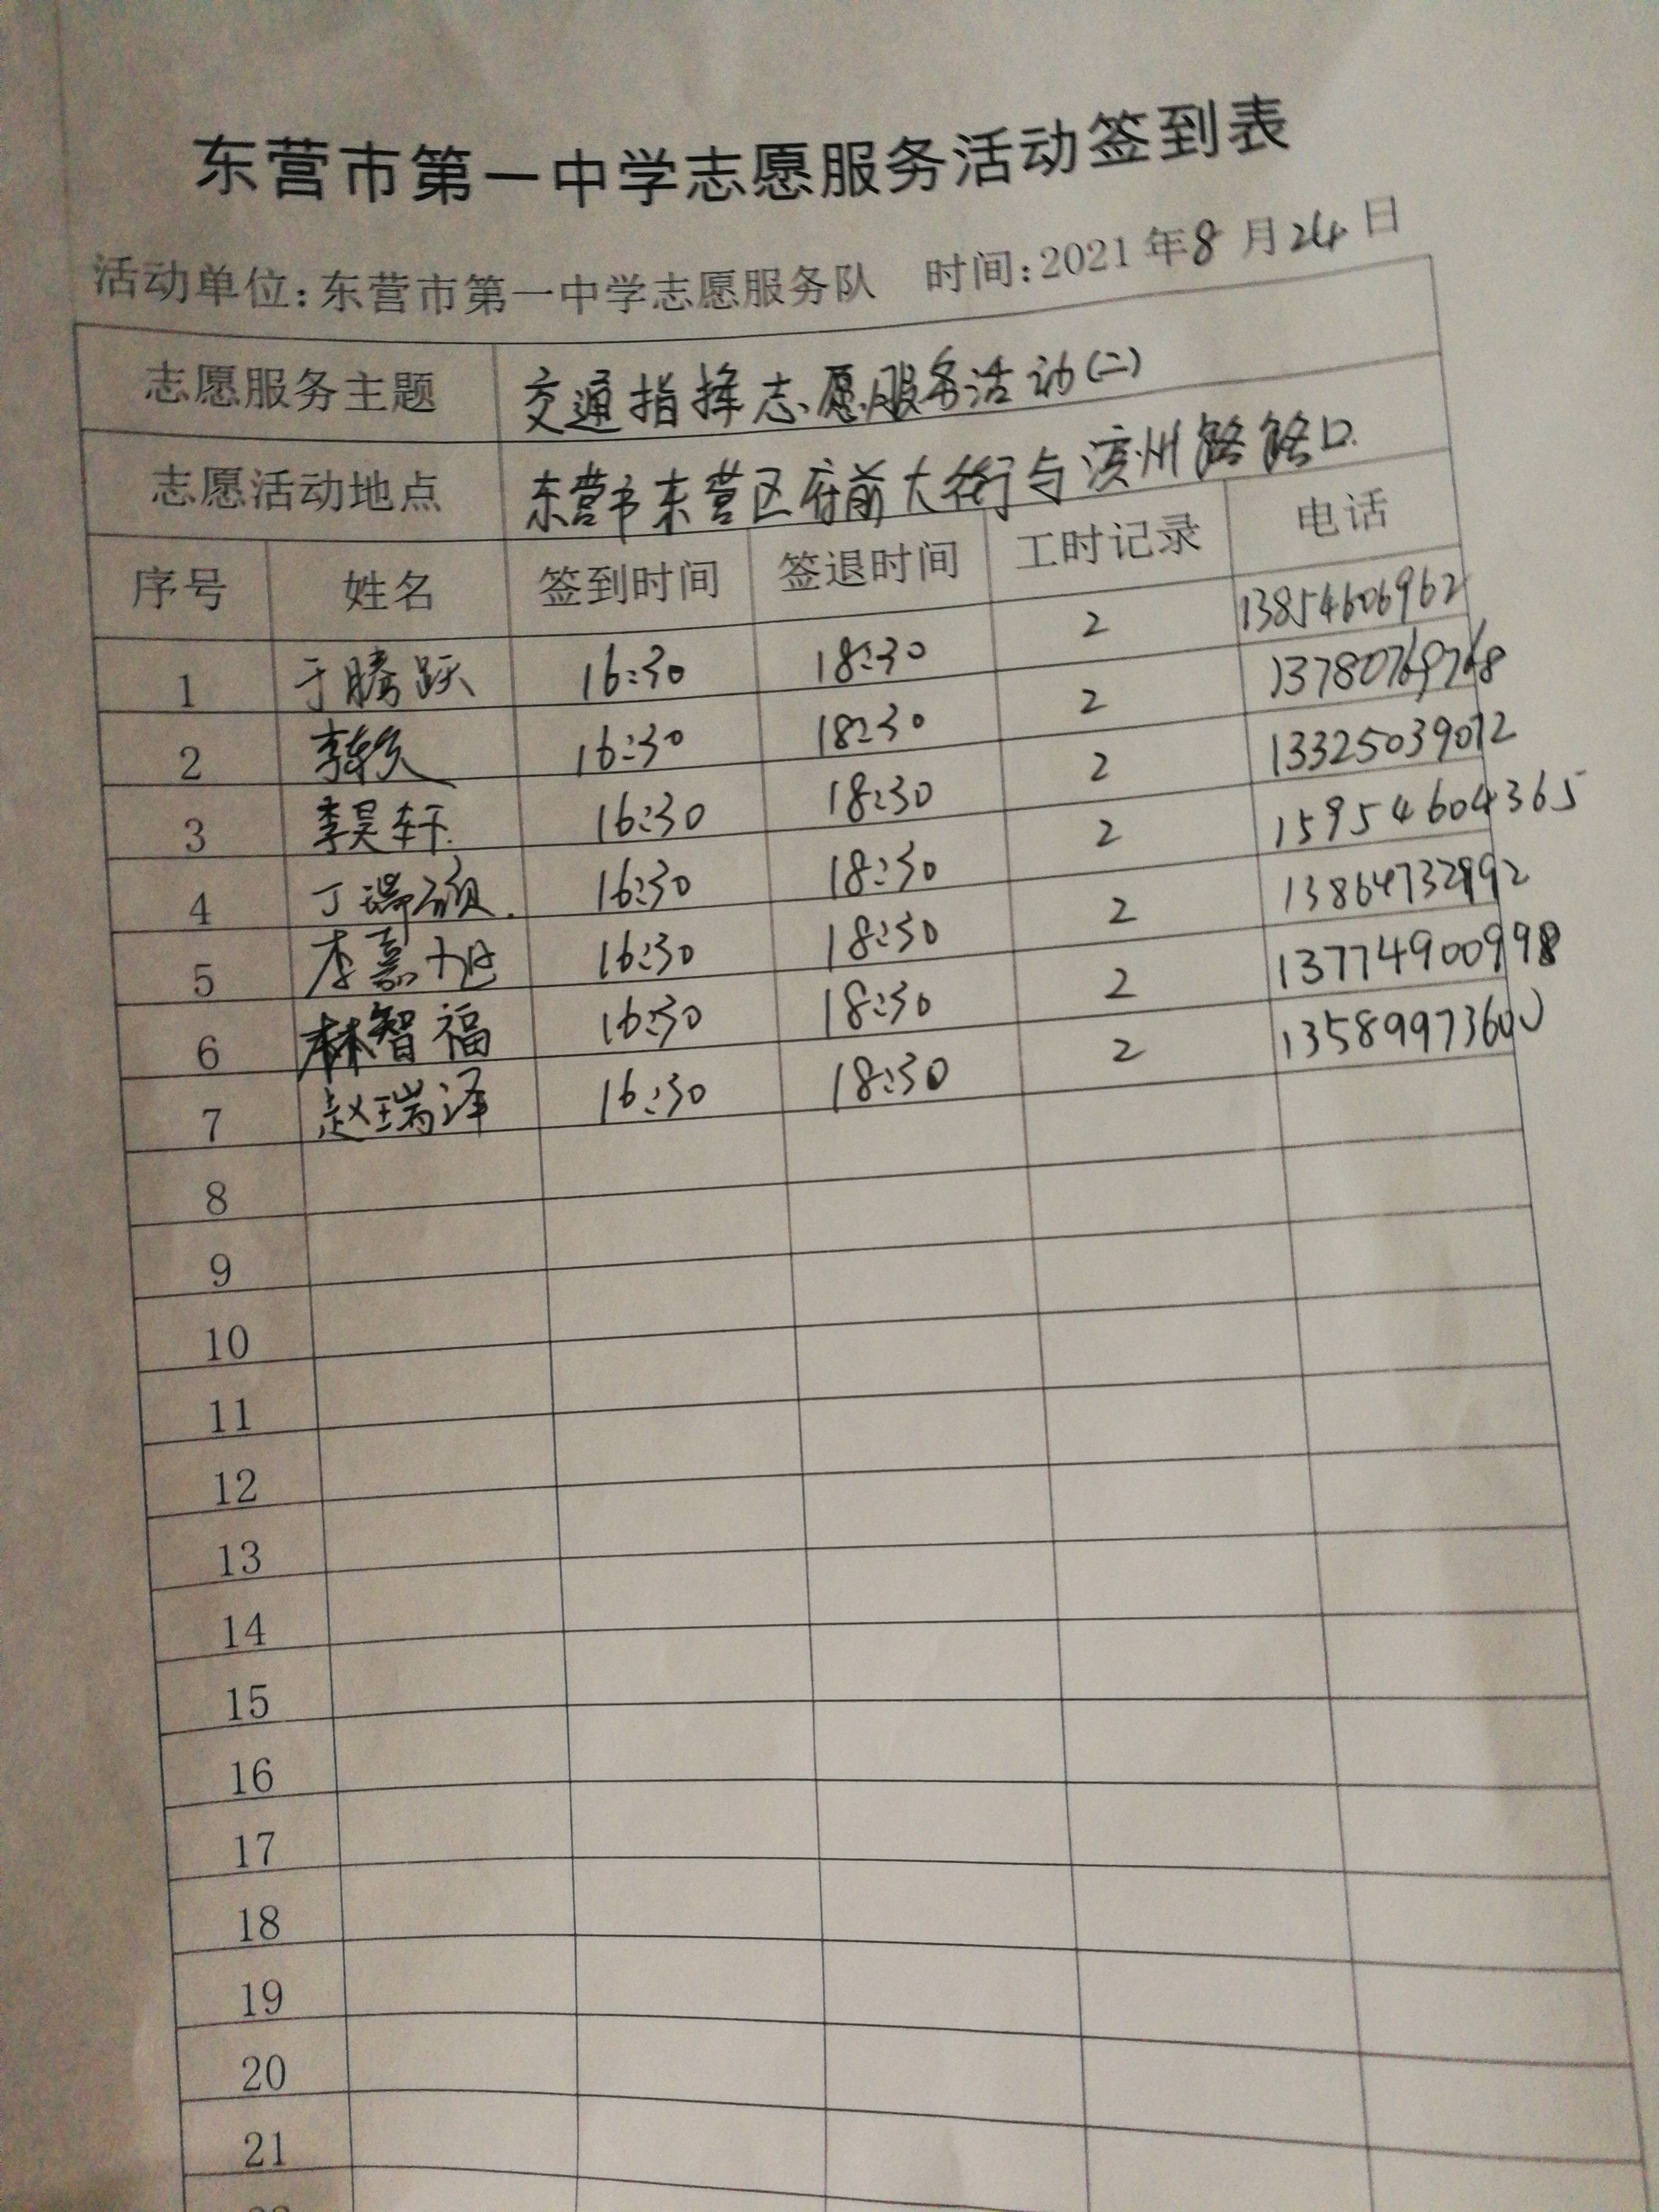 东营市第一中学志愿服务活动签到表
活动单位：东营市第一中学志愿服务队 时间：2021年8月24日
志愿服务主题 交通指挥志愿服务活动(二)
志愿活动地点 东营市东营区府前大街与滨州路路口
序号 姓名 签到时间 签退时间 工时记录 电话
1 于腾跃 16:30 18:30 2 13854606962
2 16:30 18:30 2 13780769768
3 李昊轩 16:30 18:30 2 13325039012
4 丁瑞硕 16:30 18:30 2 15954604365
5 李嘉旭 16:30 18:30 2 13864732992
6 林智福 16:30 18:30 2 13774900998
7 赵瑞泽 16:30 18:30 2 13589973600
8
9
10
11
12
13
14
15
16
17
18
19
20
21